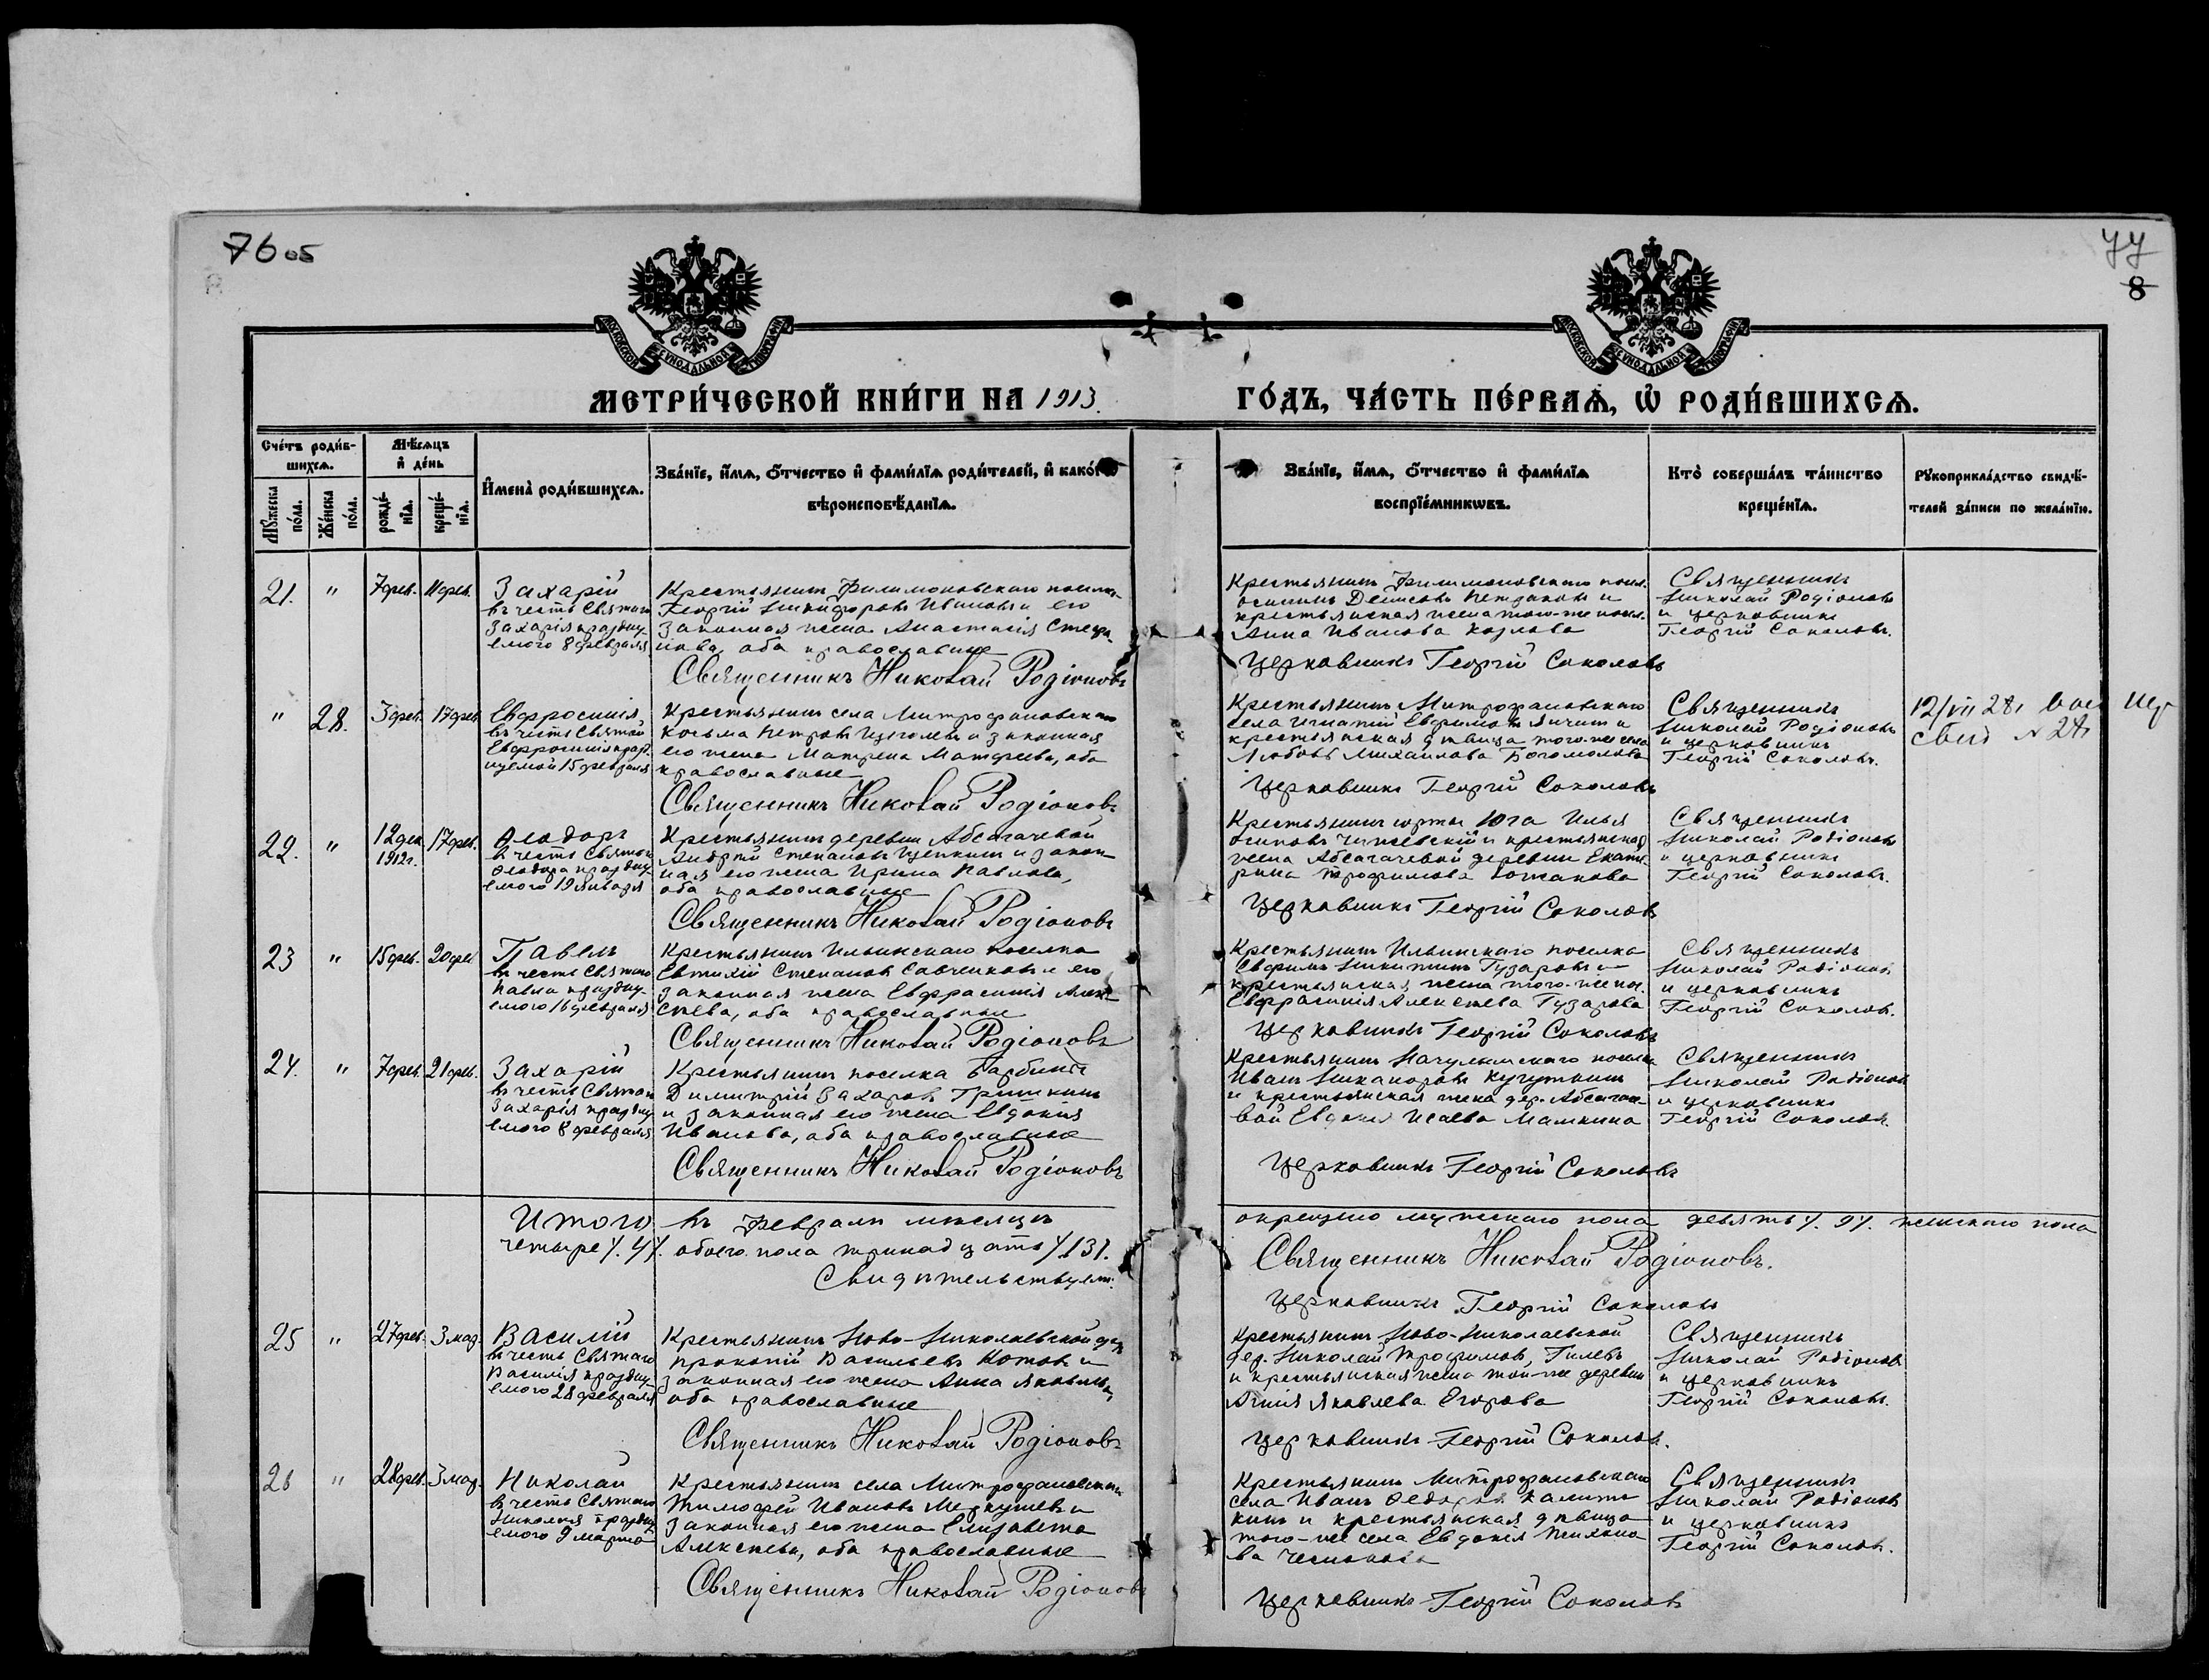 76 об
77
8
МОСКОВСКОЙ СѴНОДАЛЬНОЙ ТИПОГРАФІИ
МОСКОВСКОЙ СѴНОДАЛЬНОЙ ТИПОГРАФІИ
МЕТРИ́ЧЕСКОЙ КНИ́ГИ НА 1913.
ГО́ДЪ, ЧА́СТЬ ПЕ́РВАѦ, Ѡ҆ РОДИ́ВШИХСѦ.
Сче́тъ роди́в-
шихсѧ.
Мѣ́сѧцъ
и҆ де́нь
Мꙋ́жеска
по́ла.
Же́нска
по́ла.
рожде́-
нїѧ.
креще́-
нїѧ.
И҆мена̀ роди́вшихсѧ.
Зва́нїе, и҆́мѧ, ѻ҆́тчество и҆ фами́лїѧ роди́телей, и҆ како́гѡ
вѣроисповѣ́данїѧ.
Зва́нїе, и҆́мѧ, ѻ҆́тчество и҆ фами́лїѧ
воспрїе́мникѡвъ.
Кто̀ соверша́лъ та́инство
креще́нїѧ.
Рꙋкоприкла́дство свидѣ́-
телей за́писи по жела́нїю.
21. " 7 фев. 11 фев.
Захарій
въ честь Святаго
Захарія праздну-
емого 8 февраля
Крестьянинъ Филимоновскаго посел.
Георгій Никифоровъ Ивановъ и его
законная жена Анастасія Степа-
нова, оба православные
Священникъ Николай Родіоновъ
Крестьянинъ Филимоновскаго посел.
крестьянская жена того-же посел.
Анна Иванова Козлова
Церковникъ Георгій Соколовъ
Священникъ
Николай Родіоновъ
и церковникъ
Георгій Соколовъ.
" 28. 3 фев. 17 фев.
Евфросинія,
въ честь Святой
Евфросиніи празд-
нуемой 15 февраля
Крестьянинъ села Митрофановскаго
Косьма Петровъ Щеголевъ и законная
его жена Матрена Матфеева, оба
православные
Священникъ Николай Родіоновъ
Крестьянинъ Митрофановскаго
села Игнатій Евфимовъ
крестьянская дѣвица того-же села
Любовь Михайлова Богомолова
Церковникъ Георгій Соколовъ
Священникъ
Николай Родіоновъ
и церковникъ
Георгій Соколовъ.
12/VII 28
№ 28
22. " 12 дек. 1912 г. 17 фев.
Ѳеодоръ
въ честь Святого
Ѳеодора праздну-
емого 19 января
Крестьянинъ деревни Абсагачевой
Андрей Степановъ Щепкинъ и закон-
ная его жена Ирина Павлова,
оба православные
Священникъ Николай Родіоновъ
Крестьянинъ юрты Юга Илья
Осиповъ и крестьянская
жена Абсагачевой деревни Екате-
рина Трофимова
Церковникъ Георгій Соколовъ
Священникъ
Николай Родіоновъ
и церковникъ
Георгій Соколовъ.
23 " 15 фев. 20 фев.
Павелъ
въ честь Святаго
Павла праздну-
емого 16 февраля
Крестьянинъ Ильинскаго поселка
Евтихій Степановъ Савченковъ и его
законная жена Евфрасинія Алек-
сѣева, оба православные
Священникъ Николай Родіоновъ
Крестьянинъ Ильинскаго поселка
Ефимъ Никитинъ Гузаровъ и
крестьянская жена того-же пос.
Евфрасинія Алексѣева Гузарова
Церковникъ Георгій Соколовъ
Священникъ
Николай Родіоновъ
и церковникъ
Георгій Соколовъ.
24. " 7 фев. 21 фев.
Захарій
въ честь Святого
Захарія праздну-
емого 8 февраля
Крестьянинъ поселка
Димитрій Захаровъ Гришкинъ
и законная его жена Евдокія
Иванова, оба православные
Священникъ Николай Родіоновъ
Крестьянинъ поселка
Иванъ Никаноровъ
и крестьянская жена дер. Абсагаче-
вой Евдокія Исаева Мамкина
Церковникъ Георгій Соколовъ
Священникъ
Николай Родіоновъ
и церковникъ
Георгій Соколовъ.
Итого въ февралѣ мѣсяцѣ окрещено мужскаго пола девять /. 9 /. женскаго пола
четыре /. 4 /. обоего пола тринадцать /. 13 /.
Свидѣтельствуемъ:
Священникъ Николай Родіоновъ.
Церковникъ Георгій Соколовъ
25 " 27 фев. 3 мар.
Василій
въ честь Святаго
Василія праздну-
емого 28 февраля
Крестьянинъ Ново-Николаевской дер.
Прокопій Васильевъ Котовъ и
законная его жена Анна Яковлева,
оба православные
Священникъ Николай Родіоновъ
Крестьянинъ Ново-Николаевской
дер. Николай Трофимовъ, Гилевъ
и крестьянская жена той-же деревни
Яковлева Егорова
Церковникъ Георгій Соколовъ.
Священникъ
Николай Родіоновъ
и церковникъ
Георгій Соколовъ.
26 " 28 фев. 3 мар.
Николай
въ честь Святаго
Николая праздну-
емого 9 марта
Крестьянинъ села Митрофановскаго
Тимофей Ивановъ Меркушевъ и
законная его жена Елизавета
Алексѣева, оба православные
Священникъ Николай Родіоновъ
Крестьянинъ Митрофановскаго
села Иванъ Ѳедоровъ Калит-
кинъ и крестьянская дѣвица
того-же села Евдокія
Церковникъ Георгій Соколовъ
Священникъ
Николай Родіоновъ
и церковникъ
Георгій Соколовъ.